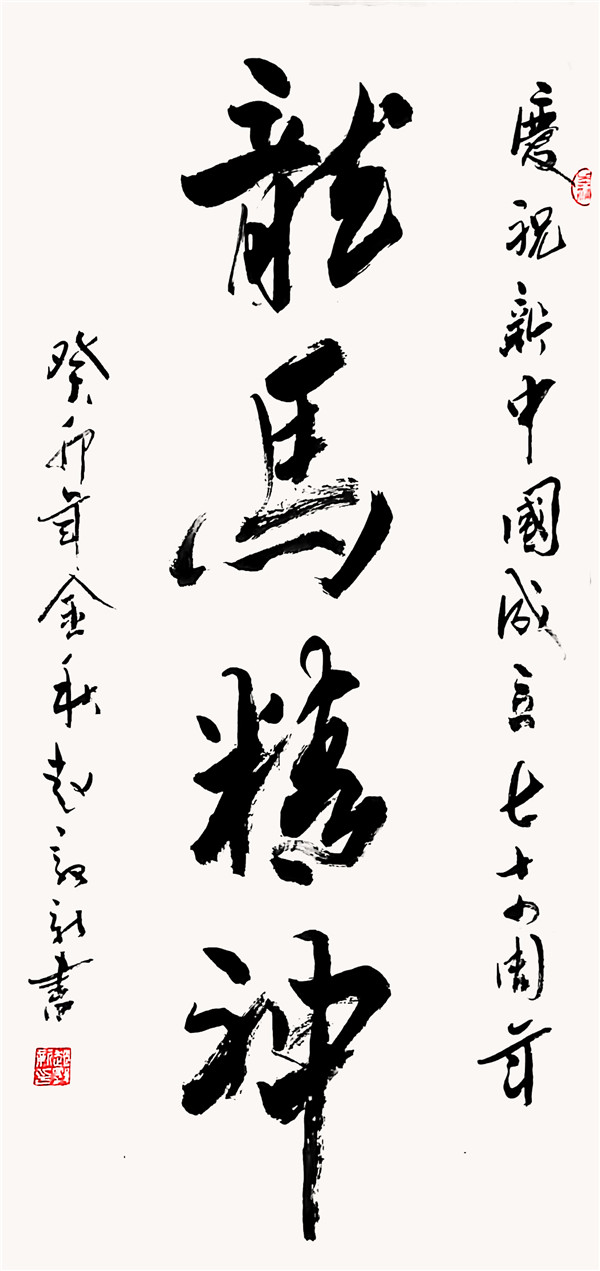 慶祝新中國成立七十四周年
龍馬精神
癸卯年金秋赵新書